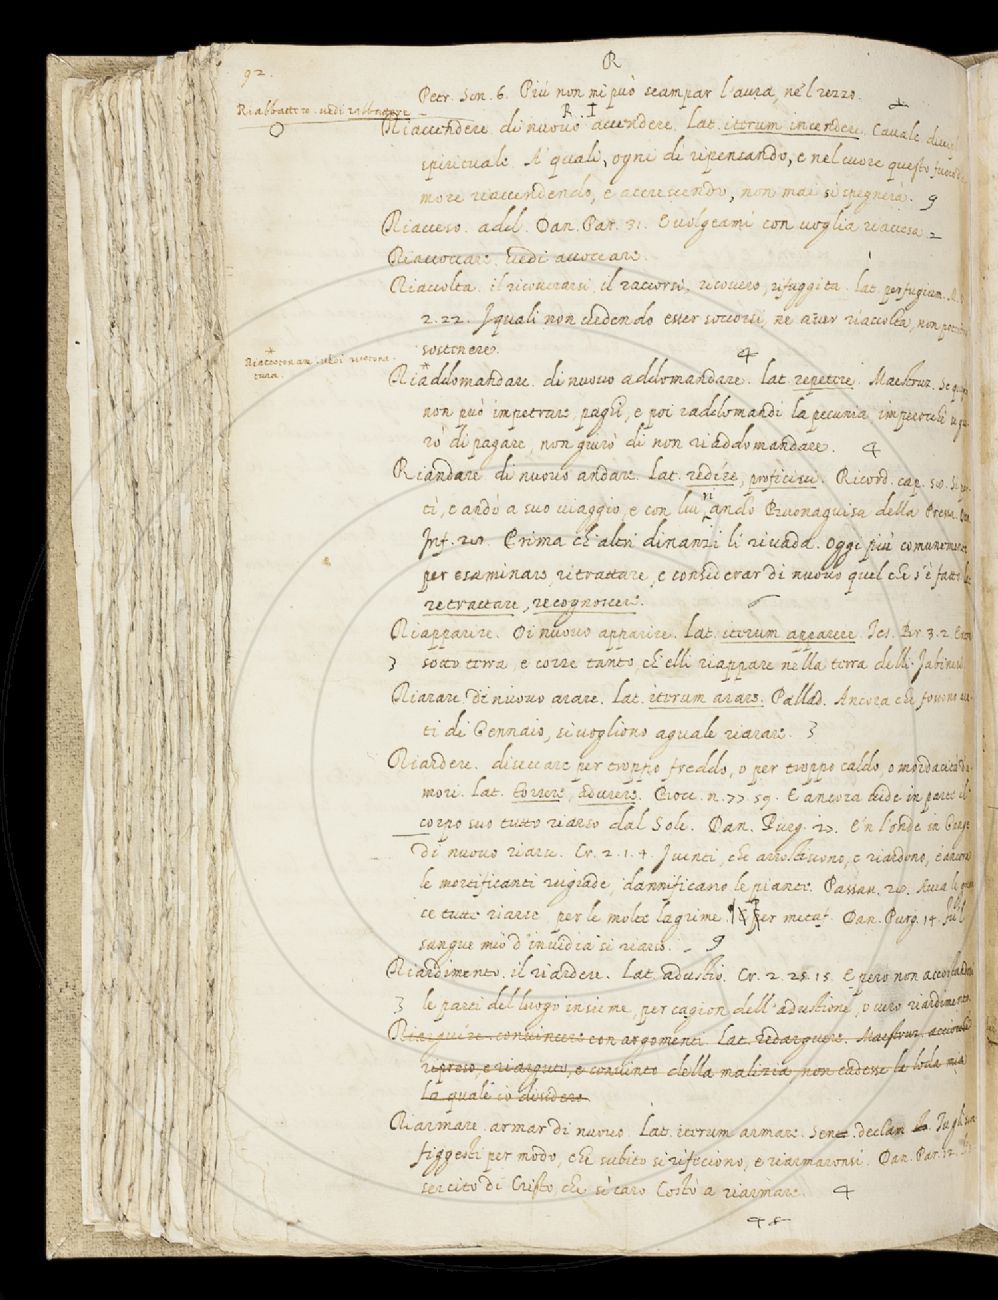 92.
R
Petr. Son. 6. Più non mi può scampar l'aura, nè 'l rezzo.
Riabbattere. vedi rabbattere
R. I
Riaccendere. di nuovo accendere. Lat. iterum incendere. Cavalc.
spirituale A' quali, ogni dì ripensando, e nel cuore questo fuoco
more riaccendendo, e accrescendo, non mai si spegnerà. 9
Riacceso. add. Dan. Par. 31. E volgeami con voglia riaccesa 2
Riaccoccare. vedi accoccare.
Riaccolta. il ricoverarsi, il raccorsi, ricovero, rifuggita. lat. perfugium. M.
2. 22. I quali non credendo esser soccorsi, ne aver riaccolta, non
sostenere.
4
Riaddomandare. di nuovo addomandare. Lat. repetere. Maestruz. Se
non può impetrare, paghi, e poi raddomandi la pecunia imperocchè
rò di pagare, non giurò di non riaddomandare. 4
Riandare di nuovo andare. Lat. redire, proficisci. Ricord. cap. 50.
tì, e andò a suo viaggio, e con lui ri andò Buonaguisa della Pressa.
Inf. 28. Prima ch' altri dinanzi li rivada. Oggi più comunemente
per esaminare, ritrattare, e considerar di nuovo quel che s'è fatto
retractare, recognoscere.
Riapparire. Di nuovo apparire. Lat. iterum apparere. Tes. Br. 3. 2
3 sotto terra, e corre tanto, ch'elli riappare nella terra delli Sabinesi
Riarare. di nuovo arare. Lat. iterum arare. Pallad. Ancora che fossono
ti di Gennaio, si vogliono aguale riarare. 3
Riardere. diseccare per troppo freddo, o per troppo caldo, o mordacità
mori. Lat. torrere, adurere. Bocc. n. 77. 59. E ancora vide in parte il
corpo suo tutto riarso dal Sole. Dan. Purg. 27. E'n l'onde in Gange
di nuovo riarse. Cr. 2. 1. 4. I venti, che arrostiscono, e riardono, e ancora
le mortificanti rugiade, dannificano le piante. Passav. 28.
ce tutte riarse, per le molte lagrime. Per metaf. Dan. Purg. 14. Fu 'l
sangue mio d'invidia sì riarso. 9
Riardimento. il riardere. Lat. adustio. Cr. 2. 25. 15. E però non
3 le parti del luogo insieme, per cagion dell' adustione, ovvero riardimento
Riarguire. convincere con argomenti. Lat. redarguere. Maestruz. acciocchè
ripreso, e riarguto, e convinto della malizia, non cadesse la loda mia
la quale io disidero.
Riarmare. armar di nuovo. Lat. iterum armare. Sen. declam.
figgesti per modo, che subito si rificiono, e riarmaronsi. Dan. Par. 12.
sercito di Cristo, che sì caro Costò a riarmare. 4